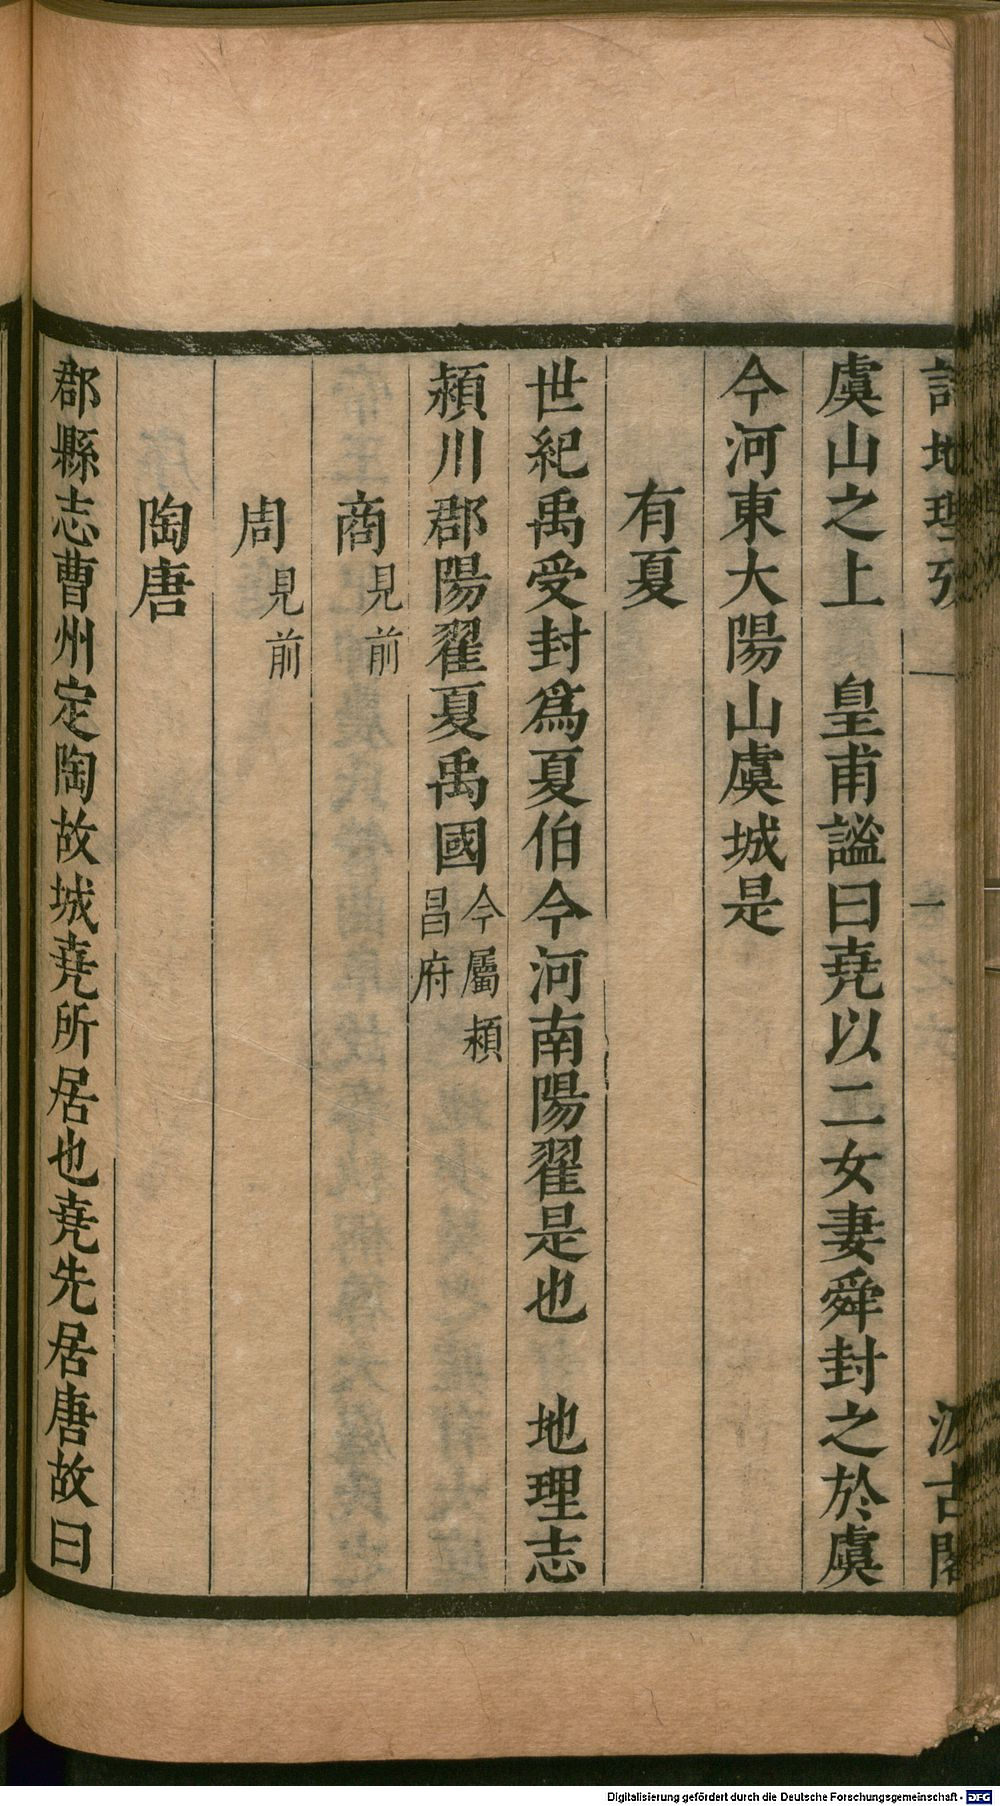 詩地理攷 一 一 汲古閣
虞山之上 皇甫謐曰堯以二女妻舜封之於虞
今河東大陽山虞城是
有夏
世紀禹受封爲夏伯今河南陽翟是也 地理志
潁川郡陽翟夏禹國今屬潁昌府
商見前
周見前
陶唐
郡縣志曹州定陶故城堯所居也堯先居唐故曰
Digitalisierung gefördert durch die Deutsche Forschungsgemeinschaft - DFG